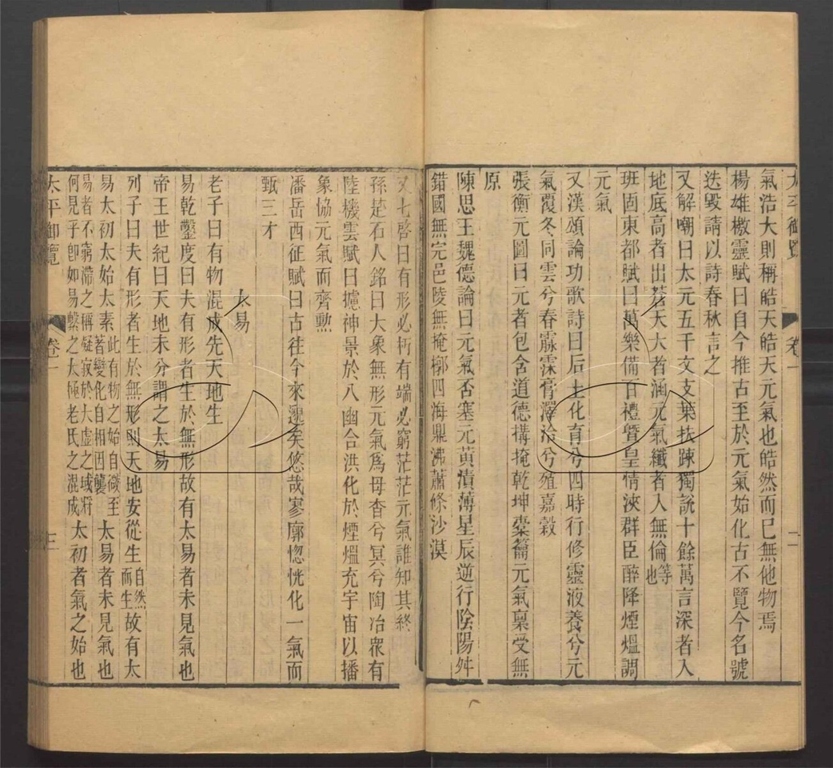 太平御覽 卷一 二
氣浩大則稱皓天皓天元氣也皓然而已無他物焉
楊雄檄靈賦曰自今推古至於元氣始化古不覽今名號
迭毀請以詩春秋言之
又解嘲曰太元五千文支葉扶踈獨說十餘萬言深者入
地底高者出蒼天大者涵元氣纖者入無倫等也
班固東都賦曰萬樂備百禮暨皇情浹群臣醉降煙熅調
元氣
又漢頌論功歌詩曰后土化育兮四時行修靈液養兮元
氣覆冬同雲兮春霢霂膏澤洽兮殖嘉穀
張衡元圖曰元者包含道德搆掩乾坤橐籥元氣稟受無
原
陳思王魏德論曰元氣否塞元黃濆薄星辰逆行陰陽舛
錯國無完邑陵無掩槨四海鼎沸蕭條沙漠
又七啓曰有形必朽有端必窮茫茫元氣誰知其終
孫楚石人銘曰大象無形元氣爲母杳兮冥兮陶冶衆有
陸機雲賦曰攄神景於八幽合洪化於煙熅充宇宙以播
象協元氣而齊勲
潘岳西征賦曰古往今來邈矣悠哉寥廓惚恍化一氣而
甄三才
太易
老子曰有物混成先天地生
易乾鑿度曰夫有形者生於無形故有太易者未見氣也
帝王世紀曰天地未分謂之太易
列子曰夫有形者生於無形則天地安從生自然而生故有太
易太初太始太素此有物之始自微至著變化自相因襲太易者未見氣也
易者不窮滯之稱凝寂於大虛之域將何見乎卽如易繫之太極老氏之混成太初者氣之始也
太平御覽 卷一 三